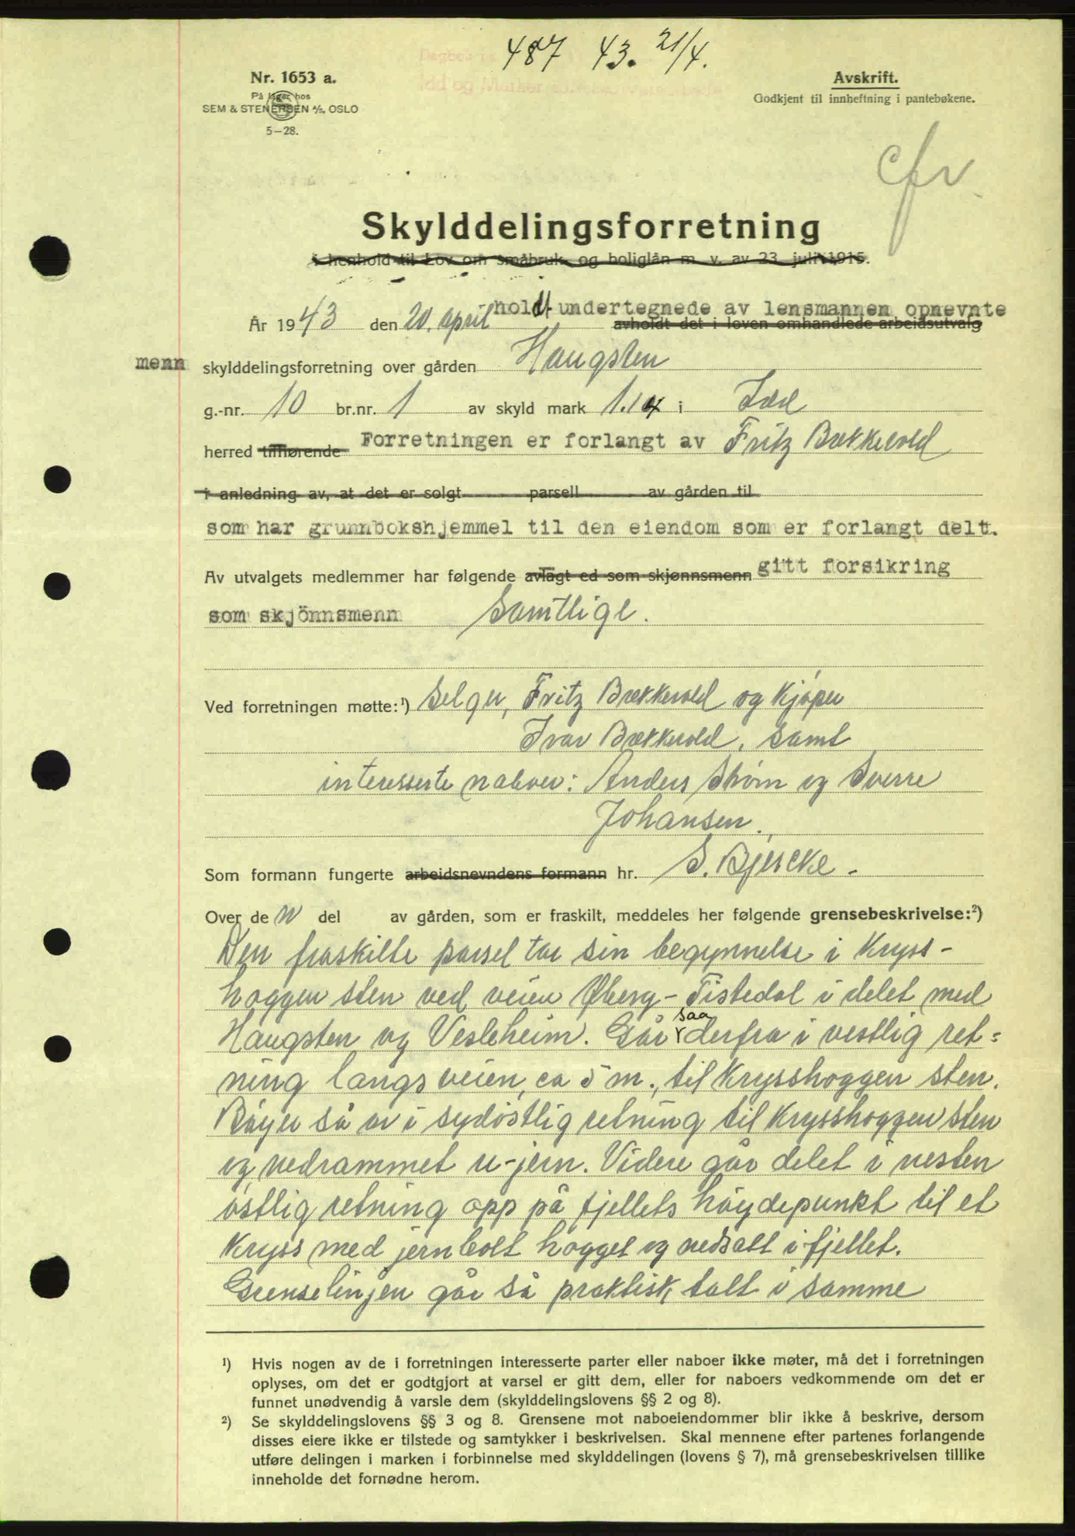 487 43. 21/4.
Nr. 1653 a.
På lager hos
SEM & STENERSEN A/S, OSLO
5-28.
Avskrift.
Godkjent til innheftning i pantebøkene.
cfr
Skylddelingsforretning
i henhold til Lov om småbruk og boliglån m. v. av 23. juli 1915.
År 1943 den 20. april holdt undertegnede av lensmannen opnevnte
avholdt det i loven omhandlede arbeidsutvalg
menn skylddelingsforretning over gården Haugsten
g.-nr. 10 br.nr. 1 av skyld mark 1.14 i Idd
herred tilhørende Forretningen er forlangt av Fritz Bækkevold
i anledning av, at det er solgt parsell av gården til
som har grunnbokshjemmel til den eiendom som er forlangt delt.
Av utvalgets medlemmer har følgende avlagt ed som skjønnsmenn gitt forsikring
som skjönnsmenn Samtlige.
Ved forretningen møtte:¹) Selger, Fritz Bækkevold og Kjøper
Ivar Bækkevold, samt
interesserte naboer: Anders Strøm og Sverre
Johansen.
Som formann fungerte arbeidsnevndens formann hr. S. Bjercke -
Over de n del av gården, som er fraskilt, meddeles her følgende grensebeskrivelse:²)
Den fraskilte parsel tar sin begynnelse i Kryss-
hoggen sten ved veien Øberg - Tistedal i delet med
Haugsten og Vesleheim. Går saa derfra i vestlig ret=
ning langs veien, ca 5 m., til Krysshoggen sten.
Bøyer så av i sydöstlig retning til Krysshoggen sten
og nedrammet u-jern. Videre går delet i nesten
östlig retning opp på fjellets høydepunkt til et
Kryss med jernbolt hogget og nedsatt i fjellet.
Grenselinjen går så praktisk talt i samme
¹) Hvis nogen av de i forretningen interesserte parter eller naboer ikke møter, må det i forretningen
oplyses, om det er godtgjort at varsel er gitt dem, eller for naboers vedkommende om det er
funnet unødvendig å varsle dem (skylddelingslovens §§ 2 og 8).
²) Se skylddelingslovens §§ 3 og 8. Grensene mot naboeiendommer blir ikke å beskrive, dersom
disses eiere ikke er tilstede og samtykker i beskrivelsen. Skal mennene efter partenes forlangende
utføre delingen i marken i forbinnelse med skylddelingen (lovens § 7), må grensebeskrivelsen tillike
inneholde det fornødne herom.